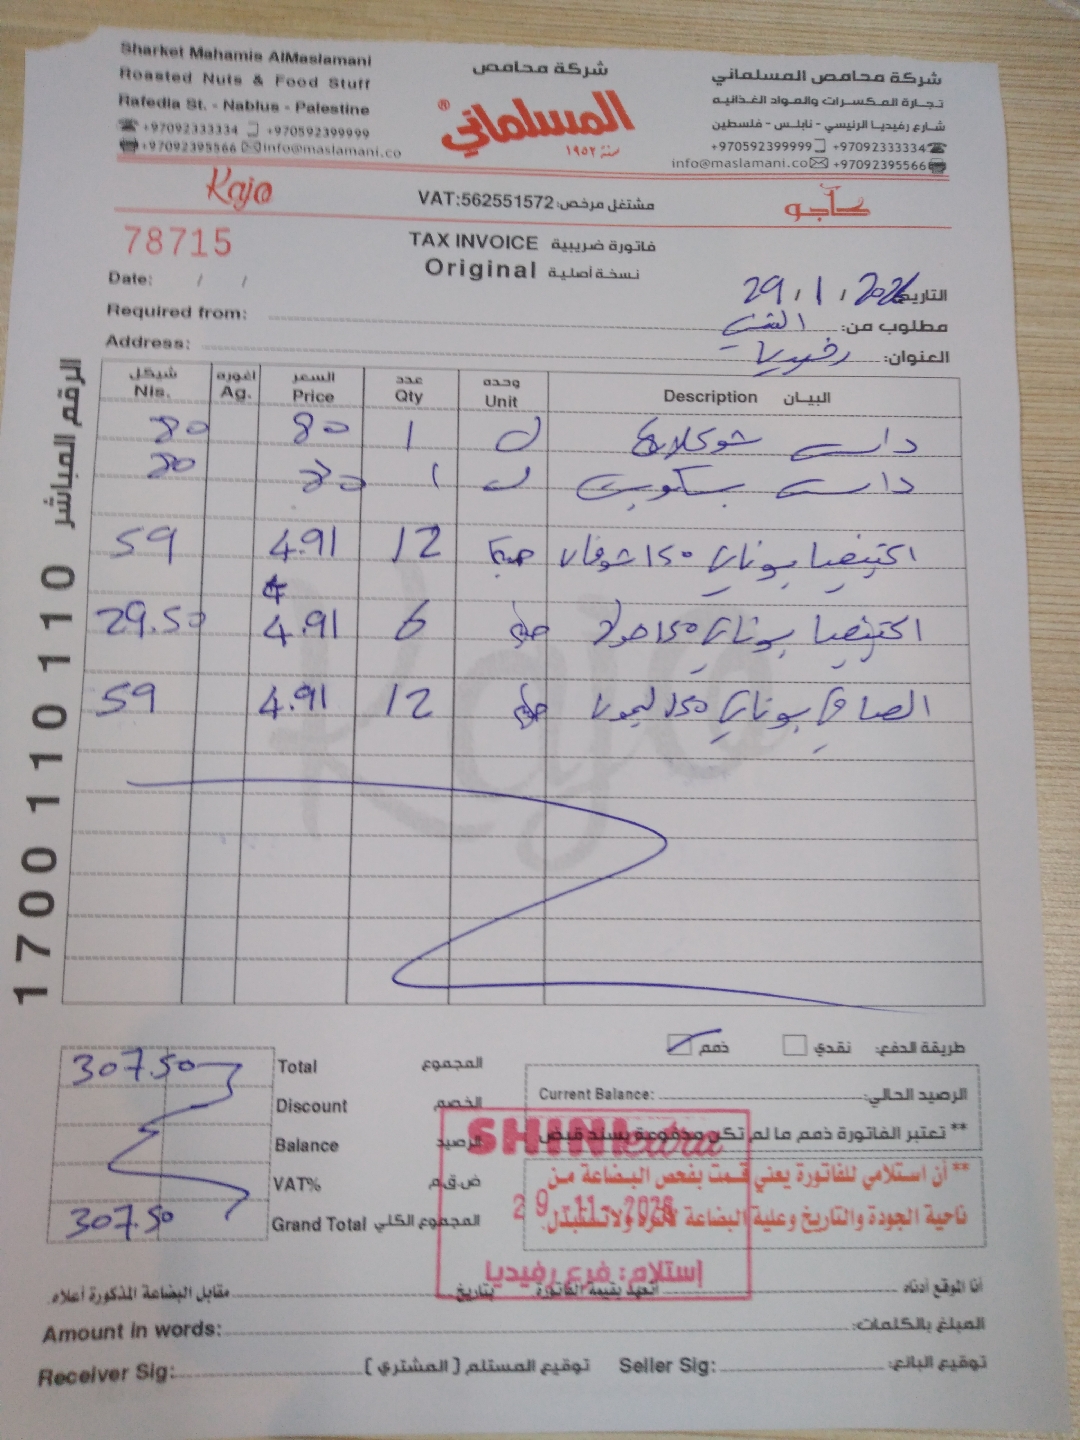 Sharket Mahamis AlMaslamani
Roasted Nuts & Food Stuff
Rafedia St. - Nablus - Palestine
+97092333334 +970592399999
+97092395566 info@maslamani.co
شركة محامص
المسلماني®
سنة ١٩٥٢
شركة محامص المسلماني
تجارة المكسرات والمواد الغذائيه
شارع رفيديا الرئيسي - نابلس - فلسطين
+970592399999 +97092333334
info@maslamani.co +97092395566
Kajo
VAT:562551572 مشتغل مرخص:
كاجو
78715
TAX INVOICE فاتورة ضريبية
Original نسخة أصلية
Date: / /
التاريخ 29/1/2026
Required from:
مطلوب من:
Address:
العنوان: رفيديا
شيكل اغوره السعر عدد وحده
Nis. Ag. Price Qty Unit Description البيان
80 80 1 شوكلاته
80 80 1 بسكوت
59 4.91 12 150
29.50 4.91 6 150
59 4.91 12 150 ليمون
الرقم المباشر 1700 110 110
طريقة الدفع: نقدي ذمم
307.50 Total المجموع
Discount الخصم
Balance الرصيد
VAT% ض.ق.م
307.50 Grand Total المجموع الكلي
Current Balance: الرصيد الحالي:
** تعتبر الفاتورة ذمم ما لم تكن مدفوعة بسند قبض
** أن استلامي للفاتورة يعني قمت بفحص البضاعة من
ناحية الجودة والتاريخ وعلية البضاعة لاترد ولاتستبدل.
SHINI extra
إستلام: فرع رفيديا
أنا الموقع أدناه أتعهد بقيمة الفاتورة بتاريخ مقابل البضاعة المذكورة أعلاه.
Amount in words: المبلغ بالكلمات:
Receiver Sig: توقيع المستلم (المشتري) Seller Sig: توقيع البائع: